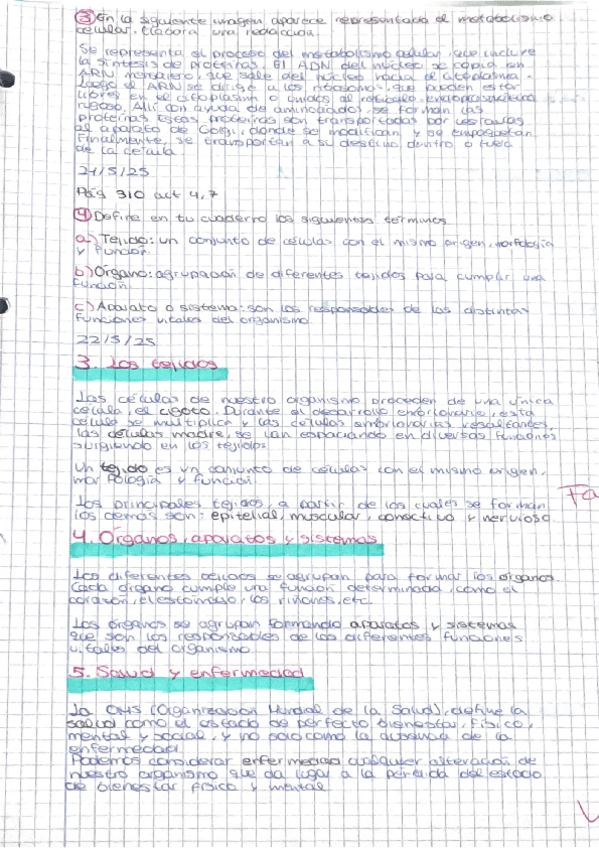 ③ En la siguiente imagen aparece representado el metabolismo
celular. Elabora una redacción.
Se representa el proceso del metabolismo celular, que incluye
la síntesis de proteínas. El ADN del núcleo se copia en
ARN mensajero, que sale del núcleo hacia el citoplasma.
Luego el ARN se dirige a los ribosomas, que pueden estar
libres en el citoplasma o unidos al retículo endoplasmático
rugoso. Allí con ayuda de aminoácidos, se forman las
proteínas. Estas proteínas son transportadas por vesículas
al aparato de Golgi, donde se modifican y se empaquetan.
Finalmente, se transportan a su destino dentro o fuera
de la célula.
21/5/25
Pág 310 act 4, 7
④ Define en tu cuaderno los siguientes términos
a) Tejido: un conjunto de células con el mismo origen, morfología
y función.
b) Órgano: agrupación de diferentes tejidos para cumplir una
función.
c) Aparato o sistema: son los responsables de las distintas
funciones vitales del organismo.
22/5/25
3. Los tejidos
Las células de nuestro organismo proceden de una única
célula, el cigoto. Durante el desarrollo embrionario, esta
célula se multiplica y las células embrionarias resultantes,
las células madre, se van especiando en diversas funciones
surgiendo en los tejidos.
Un tejido es un conjunto de células con el mismo origen,
morfología y función.
Los principales tejidos, a partir de los cuales se forman
los demás son: epitelial, muscular, conectivo y nervioso.
Fa
4. Órganos, aparatos y sistemas
Los diferentes tejidos se agrupan para formar los órganos.
Cada órgano cumple una función determinada, como el
corazón, el estómago, los riñones, etc.
Los órganos se agrupan formando aparatos y sistemas
que son los responsables de las diferentes funciones
vitales del organismo.
5. Salud y enfermedad
La OMS (Organización Mundial de la Salud), define la
salud como el estado de perfecto bienestar, físico,
mental y social, y no solo como la ausencia de la
enfermedad.
Podemos considerar enfermedad cualquier alteración de
nuestro organismo que da lugar a la pérdida del estado
de bienestar físico y mental